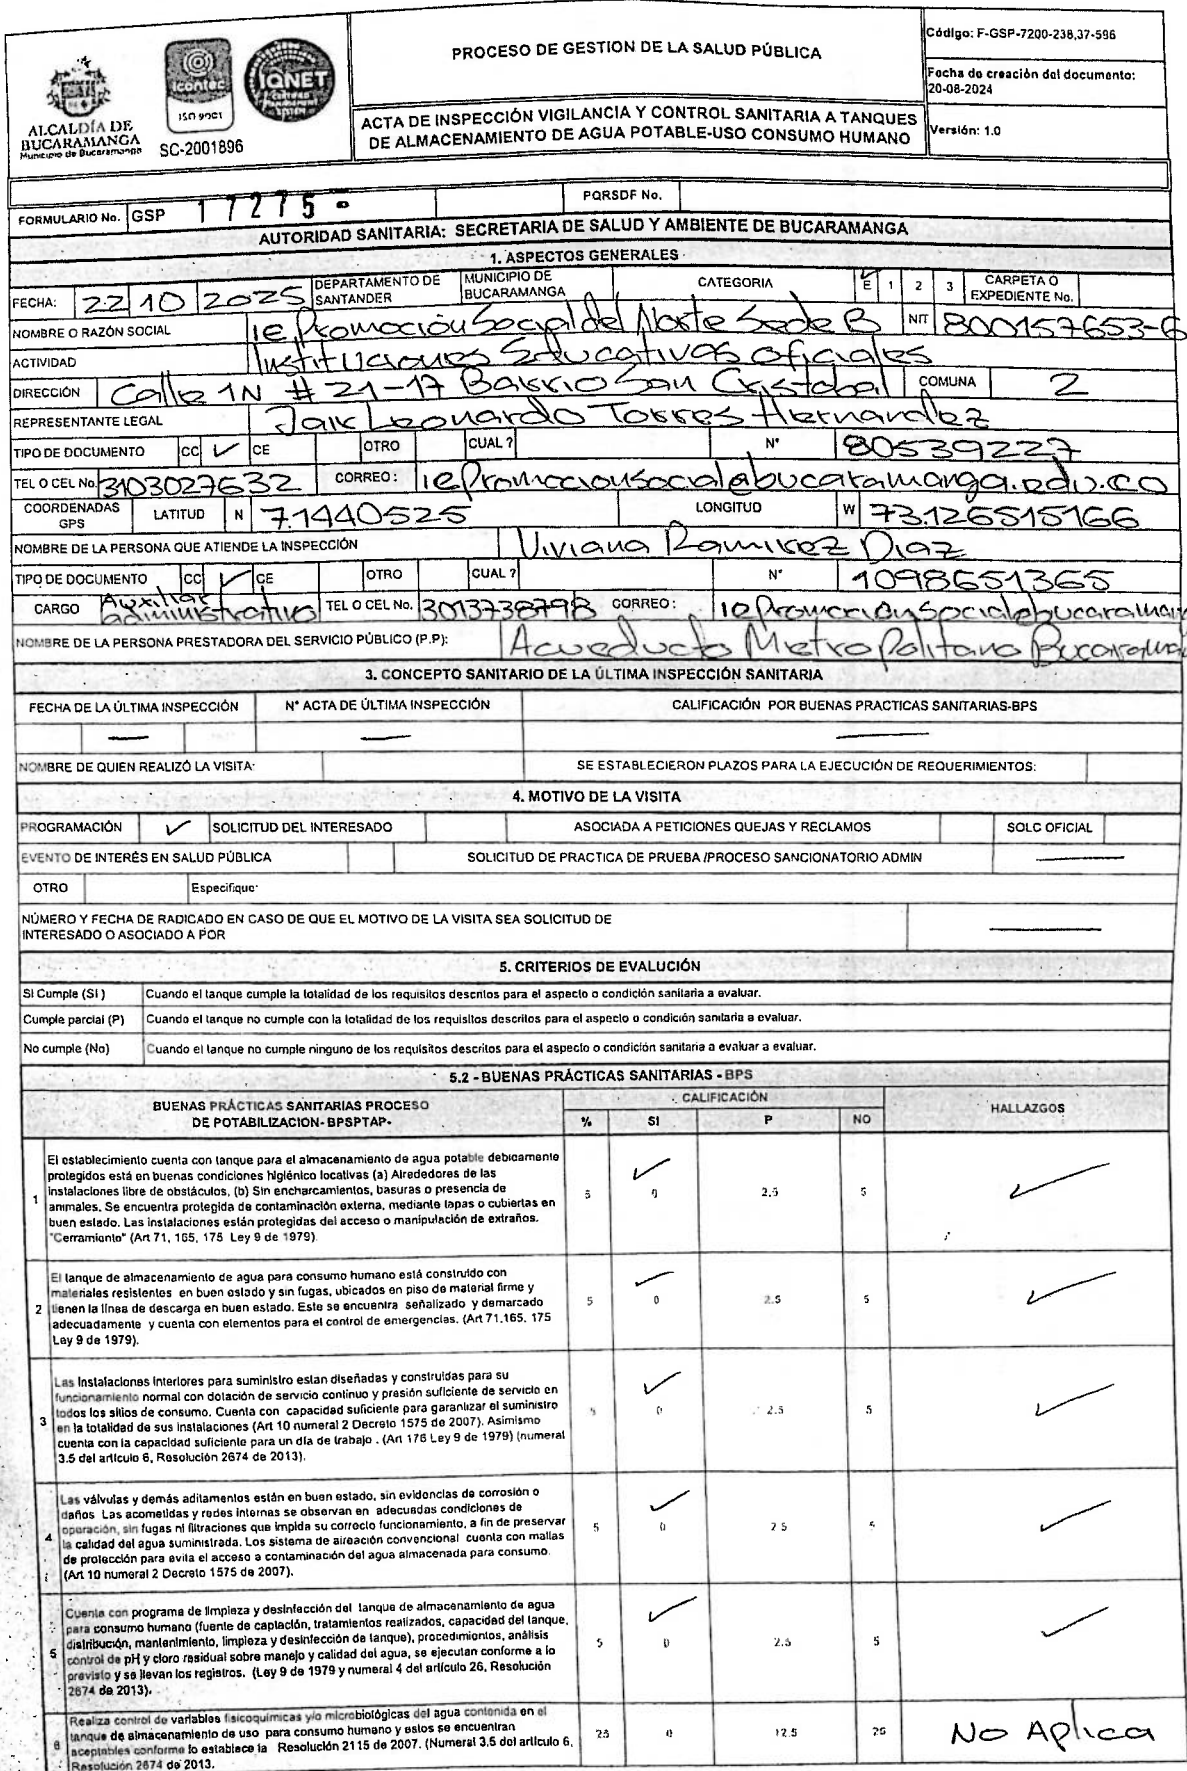 ALCALDÍA DE
BUCARAMANGA
Municipio de Bucaramanga
icontec
ISO 9001
SC-2001896
IQNET
PROCESO DE GESTION DE LA SALUD PÚBLICA
ACTA DE INSPECCIÓN VIGILANCIA Y CONTROL SANITARIA A TANQUES
DE ALMACENAMIENTO DE AGUA POTABLE-USO CONSUMO HUMANO
Código: F-GSP-7200-238,37-596
Fecha de creación del documento:
20-08-2024
Versión: 1.0
FORMULARIO No. GSP 17275- PQRSDF No.
AUTORIDAD SANITARIA: SECRETARIA DE SALUD Y AMBIENTE DE BUCARAMANGA
1. ASPECTOS GENERALES
FECHA: 22 10 2025 DEPARTAMENTO DE SANTANDER MUNICIPIO DE BUCARAMANGA CATEGORIA E 1 2 3 CARPETA O EXPEDIENTE No.
NOMBRE O RAZÓN SOCIAL IE Promoción Social del Norte Sede B NIT 800157653-6
ACTIVIDAD Instituciones Educativas oficiales
DIRECCIÓN Calle 1N # 21-17 Barrio San Cristobal COMUNA 2
REPRESENTANTE LEGAL Jair Leonardo Torres Hernandez
TIPO DE DOCUMENTO CC ✓ CE OTRO CUAL ? N° 80539227
TEL O CEL No. 3103027632 CORREO: iepromocionsocial@bucaramanga.edu.co
COORDENADAS GPS LATITUD N 7.1440525 LONGITUD W 73.126515166
NOMBRE DE LA PERSONA QUE ATIENDE LA INSPECCIÓN Viviana Ramirez Diaz
TIPO DE DOCUMENTO CC ✓ CE OTRO CUAL ? N° 1098651365
CARGO Auxiliar administrativo TEL O CEL No. 3013738798 CORREO: iepromocionsocial@bucaraman
NOMBRE DE LA PERSONA PRESTADORA DEL SERVICIO PÚBLICO (P.P): Acueducto Metropolitano Bucaraman
3. CONCEPTO SANITARIO DE LA ÚLTIMA INSPECCIÓN SANITARIA
FECHA DE LA ÚLTIMA INSPECCIÓN N° ACTA DE ÚLTIMA INSPECCIÓN CALIFICACIÓN POR BUENAS PRACTICAS SANITARIAS-BPS
— — —
NOMBRE DE QUIEN REALIZÓ LA VISITA: SE ESTABLECIERON PLAZOS PARA LA EJECUCIÓN DE REQUERIMIENTOS:
4. MOTIVO DE LA VISITA
PROGRAMACIÓN ✓ SOLICITUD DEL INTERESADO ASOCIADA A PETICIONES QUEJAS Y RECLAMOS SOLC OFICIAL
EVENTO DE INTERÉS EN SALUD PÚBLICA SOLICITUD DE PRACTICA DE PRUEBA /PROCESO SANCIONATORIO ADMIN —
OTRO Especifique:
NÚMERO Y FECHA DE RADICADO EN CASO DE QUE EL MOTIVO DE LA VISITA SEA SOLICITUD DE
INTERESADO O ASOCIADO A POR —
5. CRITERIOS DE EVALUCIÓN
SI Cumple (SI ) Cuando el tanque cumple la totalidad de los requisitos descritos para el aspecto o condición sanitaria a evaluar.
Cumple parcial (P) Cuando el tanque no cumple con la totalidad de los requisitos descritos para el aspecto o condición sanitaria a evaluar.
No cumple (No) Cuando el tanque no cumple ninguno de los requisitos descritos para el aspecto o condición sanitaria a evaluar a evaluar.
5.2 - BUENAS PRÁCTICAS SANITARIAS - BPS
BUENAS PRÁCTICAS SANITARIAS PROCESO
DE POTABILIZACION- BPSPTAP-
CALIFICACIÓN
% SI P NO
HALLAZGOS
1 El establecimiento cuenta con tanque para el almacenamiento de agua potable debidamente
protegidos está en buenas condiciones higiénico locativas (a) Alrededores de las
instalaciones libre de obstáculos, (b) Sin encharcamientos, basuras o presencia de
animales. Se encuentra protegida de contaminación externa, mediante tapas o cubiertas en
buen estado. Las instalaciones están protegidas del acceso o manipulación de extraños.
"Cerramiento" (Art 71, 165, 175 Ley 9 de 1979)
5 ✓ 0 2.5 5 ✓
2 El tanque de almacenamiento de agua para consumo humano está construido con
materiales resistentes en buen estado y sin fugas, ubicados en piso de material firme y
tienen la línea de descarga en buen estado. Este se encuentra señalizado y demarcado
adecuadamente y cuenta con elementos para el control de emergencias. (Art 71.165. 175
Ley 9 de 1979).
5 ✓ 0 2.5 5 ✓
3 Las Instalaciones Interiores para suministro estan diseñadas y construidas para su
funcionamiento normal con dotación de servicio continuo y presión suficiente de servicio en
todos los sitios de consumo. Cuenta con capacidad suficiente para garantizar el suministro
en la totalidad de sus instalaciones (Art 10 numeral 2 Decreto 1575 de 2007). Asimismo
cuenta con la capacidad suficiente para un día de trabajo . (Art 176 Ley 9 de 1979) (numeral
3.5 del articulo 6, Resolución 2674 de 2013).
5 ✓ 0 2.5 5 ✓
4 Las válvulas y demás aditamentos están en buen estado, sin evidencias de corrosión o
daños Las acometidas y redes internas se observan en adecuadas condiciones de
operación, sin fugas ni filtraciones que impida su correcto funcionamiento, a fin de preservar
la calidad del agua suministrada. Los sistema de aireación convencional cuenta con mallas
de protección para evita el acceso a contaminación del agua almacenada para consumo.
(Art 10 numeral 2 Decreto 1575 de 2007).
5 ✓ 0 2.5 5 ✓
5 Cuenta con programa de limpieza y desinfección del tanque de almacenamiento de agua
para consumo humano (fuente de captación, tratamientos realizados, capacidad del tanque,
distribución, mantenimiento, limpieza y desinfección de tanque), procedimientos, análisis
control de pH y cloro residual sobre manejo y calidad del agua, se ejecutan conforme a lo
previsto y se llevan los registros. (Ley 9 de 1979 y numeral 4 del artículo 26, Resolución
2674 de 2013).
5 ✓ 0 2.5 5 ✓
6 Realiza control de variables fisicoquímicas y/o microbiológicas del agua contenida en el
tanque de almacenamiento de uso para consumo humano y estos se encuentran
aceptables conforme lo establece la Resolución 2115 de 2007. (Numeral 3.5 del artículo 6,
Resolución 2674 de 2013.
25 0 12.5 25 No Aplica